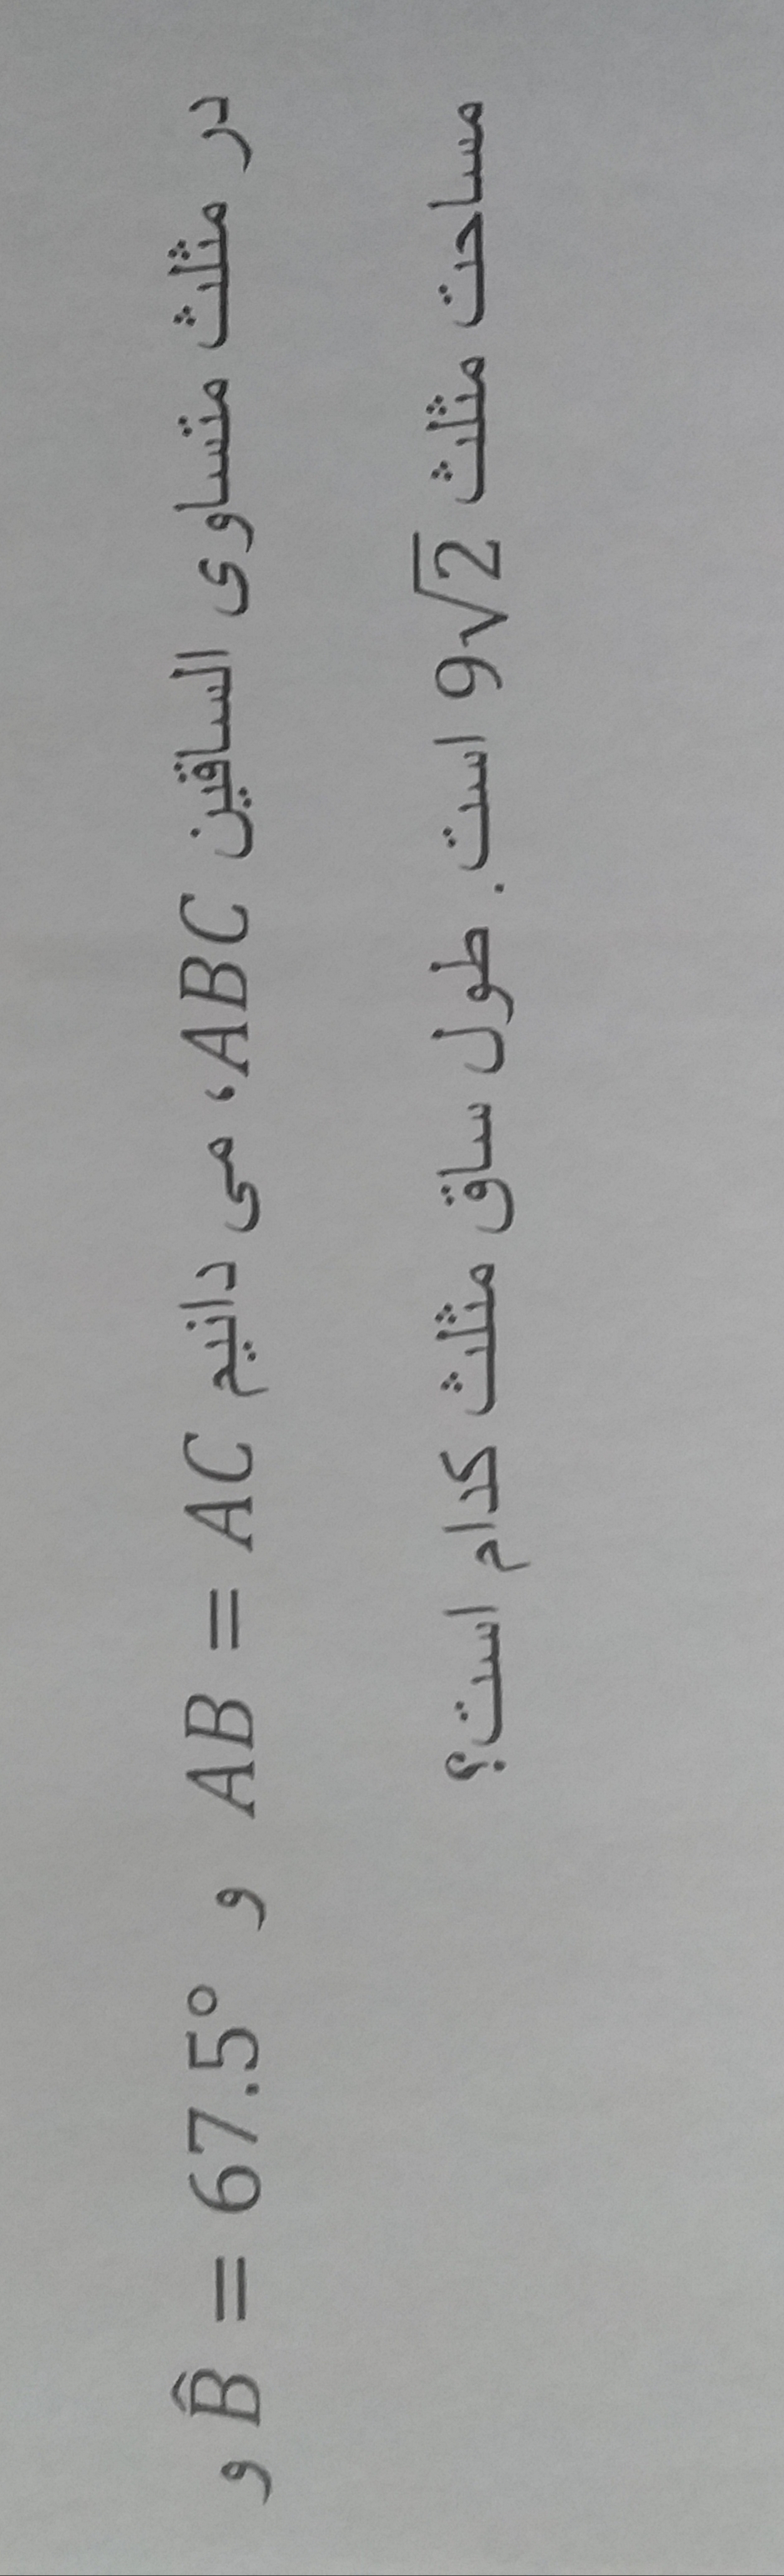 در مثلث متساوی الساقین ABC، می دانیم AB = AC و B̂ = 67.5° و
مساحت مثلث 9√2 است. طول ساق مثلث کدام است؟